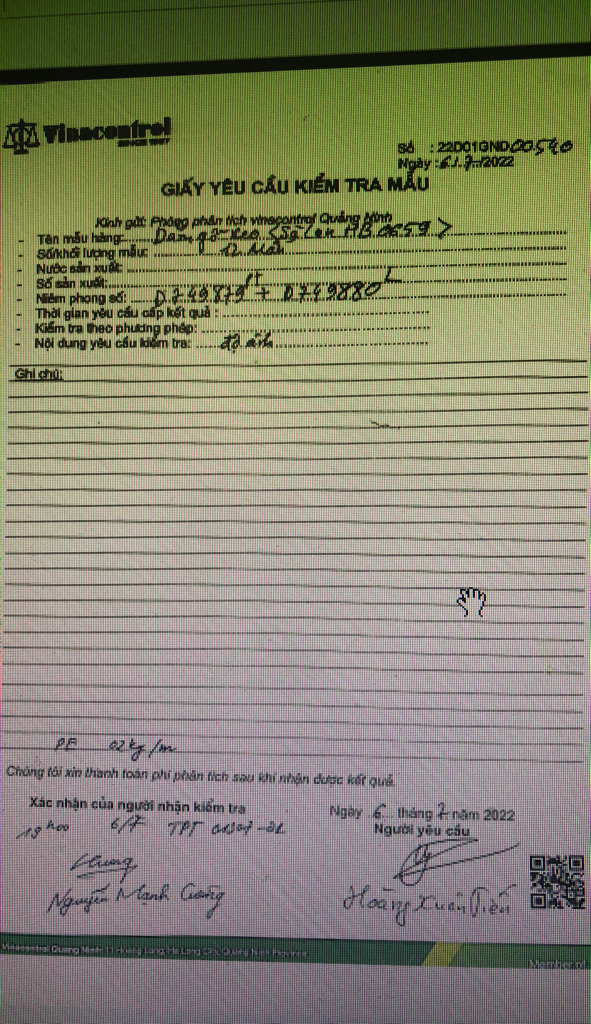 Vinacontrol
SINCE 1957
Số : 22D01GND00540
Ngày : 6/7/2022
GIẤY YÊU CẦU KIỂM TRA MẪU
Kính gửi: Phòng phân tích vinacontrol Quảng Ninh
- Tên mẫu hàng: Dăm gỗ keo
- Số/khối lượng mẫu: 12
- Nước sản xuất:
- Số sản xuất:
- Niêm phong số: D749879 + D749880
- Thời gian yêu cầu cấp kết quả :
- Kiểm tra theo phương pháp:
- Nội dung yêu cầu kiểm tra: độ ẩm
Ghi chú:
PE 02kg/m
Chúng tôi xin thanh toán phí phân tích sau khi nhận được kết quả.
Xác nhận của người nhận kiểm tra
Ngày 6 tháng 7 năm 2022
Người yêu cầu
19h00 6/7 TPT
Nguyễn Mạnh Cường
Hoàng Xuân Tiến
Vinacontrol Quang Ninh: 11 Hoang Long, Ha Long City, Quang Ninh Province
Member of